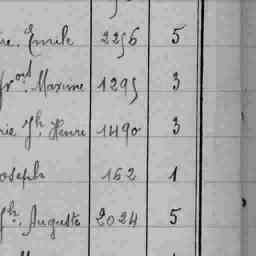 re. Emile 2256 5
fr.ois Maxime 1295 3
rie Jh. Henri 1490 3
oseph 162 1
Jh. Auguste 2024 5